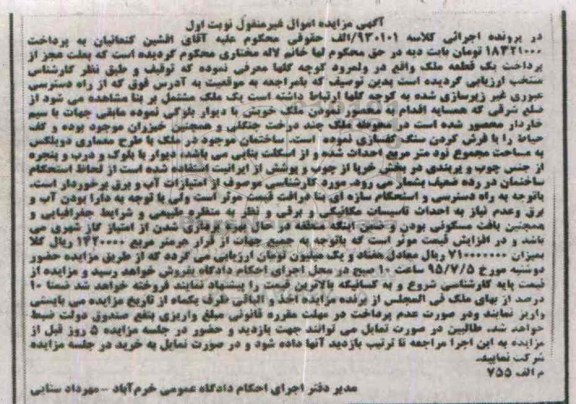 آگهی مزایده اموال غیرمنقول نوبت اول
در پرونده اجرائی کلاسه ۹۳۰۱۰۱/الف حقوقی محکوم علیه آقای افشین کنعانیان به پرداخت
۱۸۳۲۱۰۰۰ تومان بابت دیه در حق محکوم لها خانم لاله مختاری محکوم گردیده است که بعلت عجز از
پرداخت یک قطعه ملک واقع در ولمرود کوچه گلها معرفی نموده که توقیف و طبق نظر کارشناسی
منتخب ارزیابی گردیده است بدین توصیف که بامراجعه به موقعیت به آدرس فوق که از راه دسترسی
عبوری غیر زیرسازی شده به کوچه گلها ارتباط داشته است یک ملک مشتمل بر بنا مشاهده می شود از
ضلع شرقی که همسایه اقدام به محصور نمودن ملک خویش با دیوار بلوکی نموده مابقی جهات با سیم
خاردار محصور شده است در محوطه ملک چند درخت جنگلی و همچنین خیزران موجود بوده و کف
حیاط را با فرش کردن سنگ کفسازی نموده است. ساختمان موجود در ملک با طرح معماری دوبلکس
به مساحت مجموع نود متر مربع احداث شده و از اسکلت بنایی می باشد، دیوار با بلوک و درب و پنجره
از جنس چوب و پربندی در بخش خرپا از چوب و پوشش از ایرانیت استفاده شده است از لحاظ استحکام
ساختمان در رده ضعیف بشمار می رود. مورد کارشناسی موصوف از امتیازات آب و برق برخوردار است.
باتوجه به راه دسترسی و استحکام سازه ای بنا دریافت قیمت موثر است ولی با توجه به دارا بودن آب و
برق وعدم نیاز به احداث تاسیسات مکانیکی و برقی و نظر به منظره طبیعی و شرایط جغرافیایی و
همچنین بافت مسکونی بودن وضمن اینکه منطقه در حال زیرسازی شدن از امتیاز گاز شهری می
باشد و در افزایش قیمت موثر است که باتوجه به جمیع جهات از قرار هرمتر مربع ۱۴۲۰۰۰۰ ریال کلا
بمیزان ۷۱۰۰۰۰۰۰۰ ریال معادل هفتاد و یک میلیون تومان ارزیابی می گردد که از طریق مزایده حضور
دوشنبه مورخ ۹۵/۷/۵ ساعت ۱۰ صبح در محل اجرای احکام دادگاه بفروش خواهد رسید و مزایده از
قیمت پایه کارشناسی شروع و به کسانیکه بالاترین قیمت را پیشنهاد نمایند فروخته خواهد شد ضمنا ۱۰
درصد از بهای ملک فی المجلس از برنده مزایده اخذ و الباقی ظرف یکماه از تاریخ مزایده می بایستی
واریز نمایند ودر صورت عدم پرداخت در مهلت مقرره قانونی مبلغ واریزی بنفع صندوق دولت ضبط
خواهد شد. طالبین در صورت تمایل می توانند جهت بازدید و حضور در جلسه مزایده ۵ روز قبل از
مزایده به این اجرا مراجعه تا ترتیب بازدید آنها داده شود و در صورت تمایل به خرید در جلسه مزایده
شرکت نمایید.
م الف ۷۵۵
مدیر دفتر اجرای احکام دادگاه عمومی خرم آباد - مهرداد سنایی